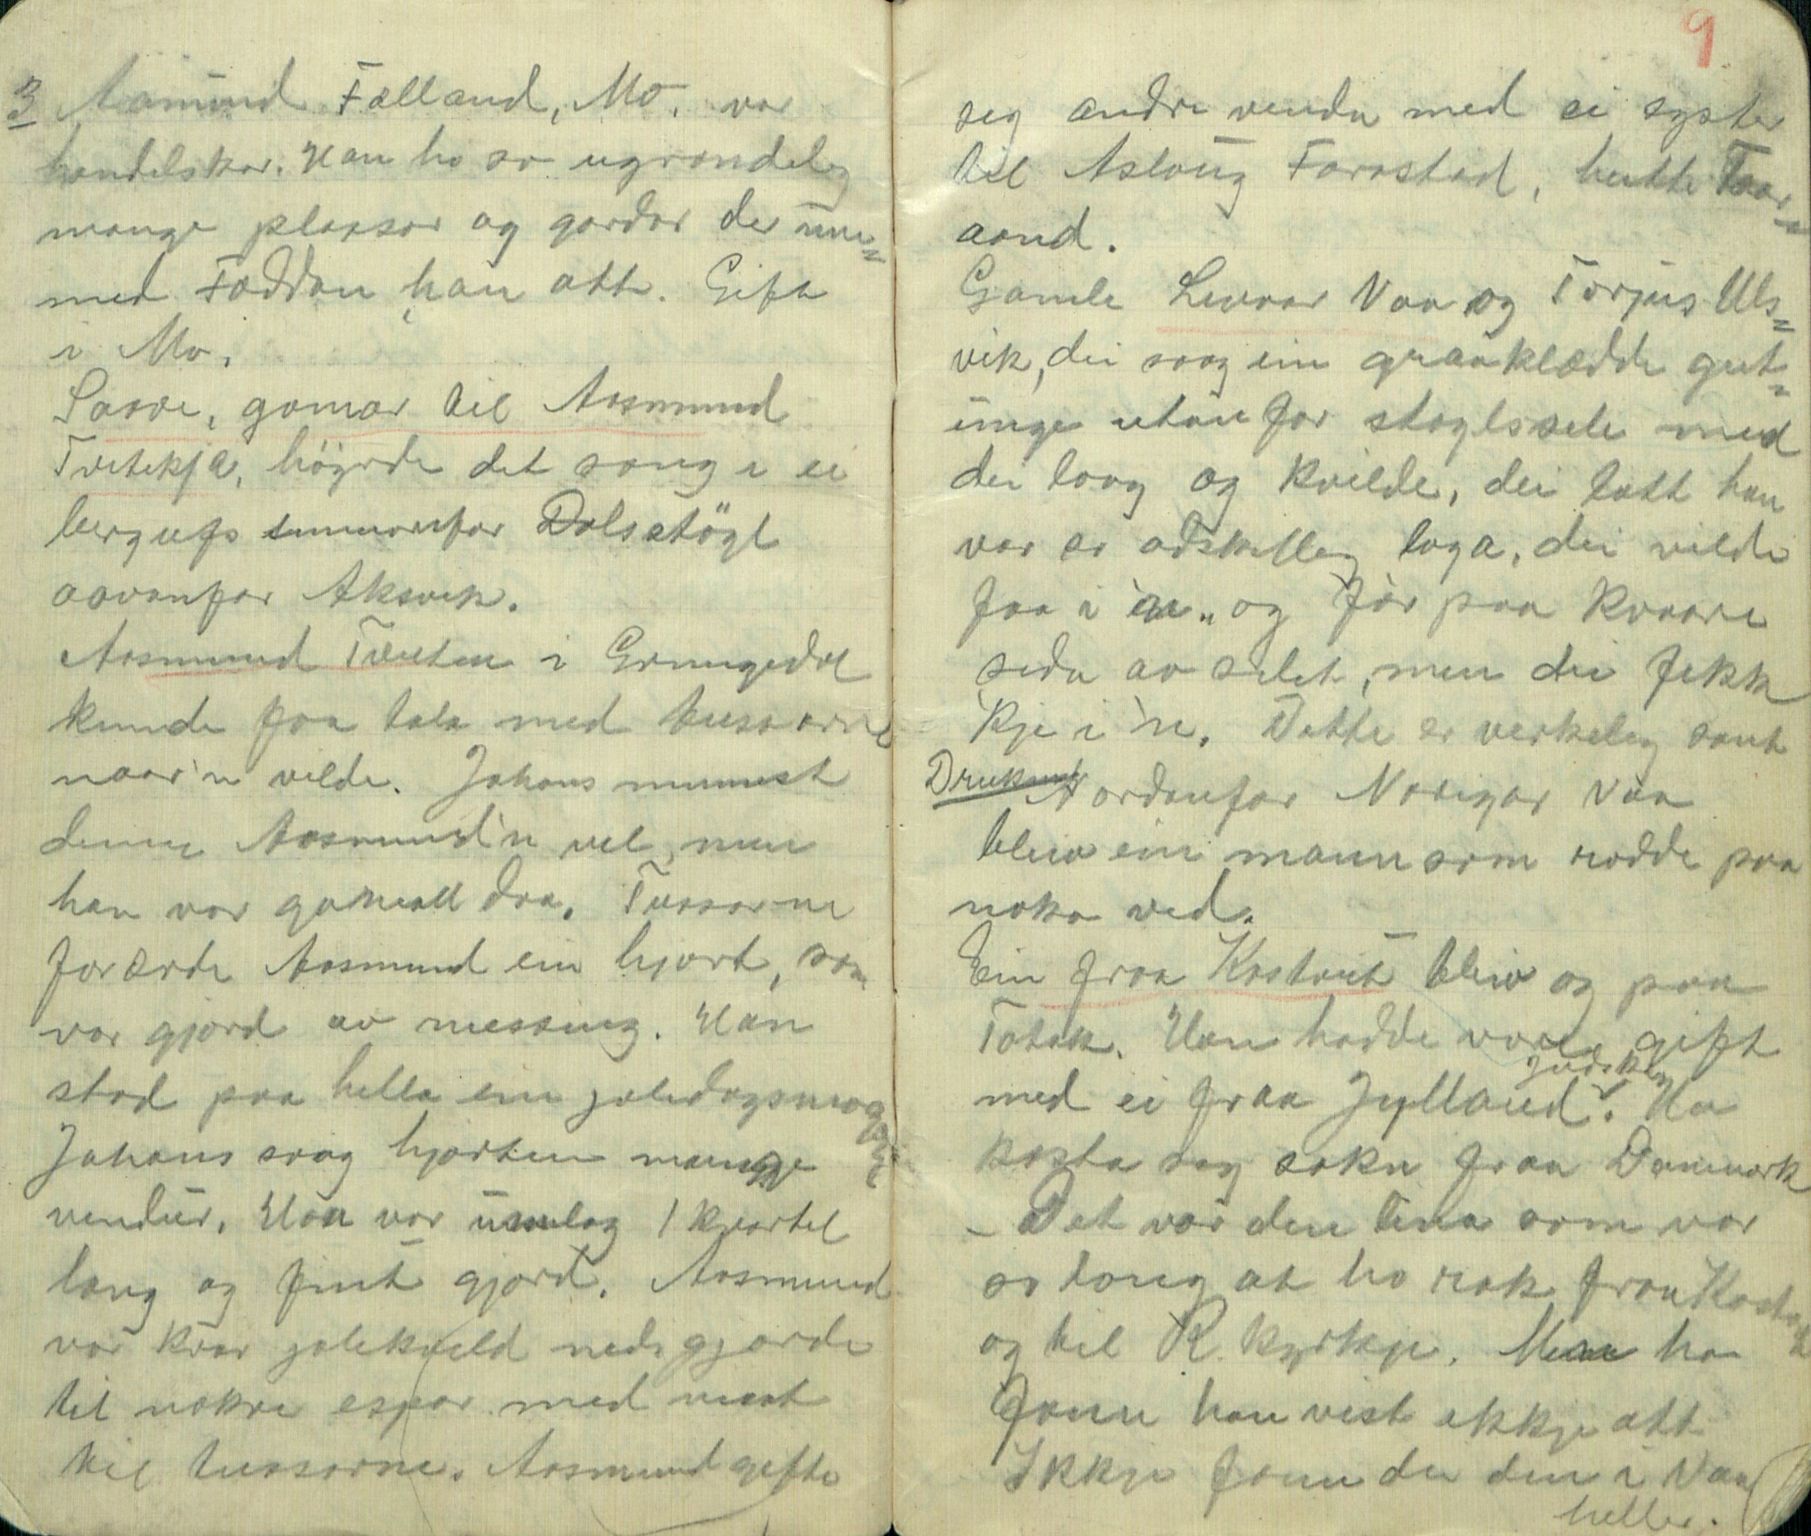 3 Aamund Falland, Mo. var
handelskar. Han ha so ugrandeleg
mange plassar og gardar der um=
med Foddan han att. Gift
i Mo.
Saave, gamar til Aasmund
Tvitekja, höyrde det song i ei
bergufs innanfor Dalsstögl
aavanfor Aksvik.
Aasmund Tveiten i Grungedal
kunde faa tala med tussarne
naar'n vilde. Johans minnest
denne Aasmund'n vel, men
han var gamall daa. Tussarne
forærde Aasmund ein hjort, som
var gjord av messing. Han
stod paa hella ein joledagsmorg
Johans saag hjorten mange
vendur. Han var umlag 1 kvartel
lang og fint gjord. Aasmund
var kvar jolekveld neds gjorde
til nokre espar med mat
til tussarne. Aasmund gifte
9
seg andre vendu med ei syster
til Aslaug Farastad, heitte Taar=
aand.
Gamle Levaar Vaa og Torjus Uls=
vik, dei saag ein graaklædde gut=
unge utanfor stoglssele med
dei laag og kvilde, dei tatt han
var so adskilleg laga, dei vilde
faa i 'an og for paa kvaare
sida av selet, men dei fekk
kje i 'n. Dette er verkeleg sant
Drukna
Nordanfor Norigar Vaa
bleiv ein mann som rodde paa
noko ved.
Ein fraa Kostveit bleiv og paa
Totak. Han hadde vore gift
med ei fraa Jylland. Ho
jødskla
kosta seg sokn fraa Danmark
- Det var den lina som var
so long at ho rak fraa Kost
og til R. kyrkje. Men ho
fann han vist ikkje att
Ikkje fann dei den i Vaa
heller.